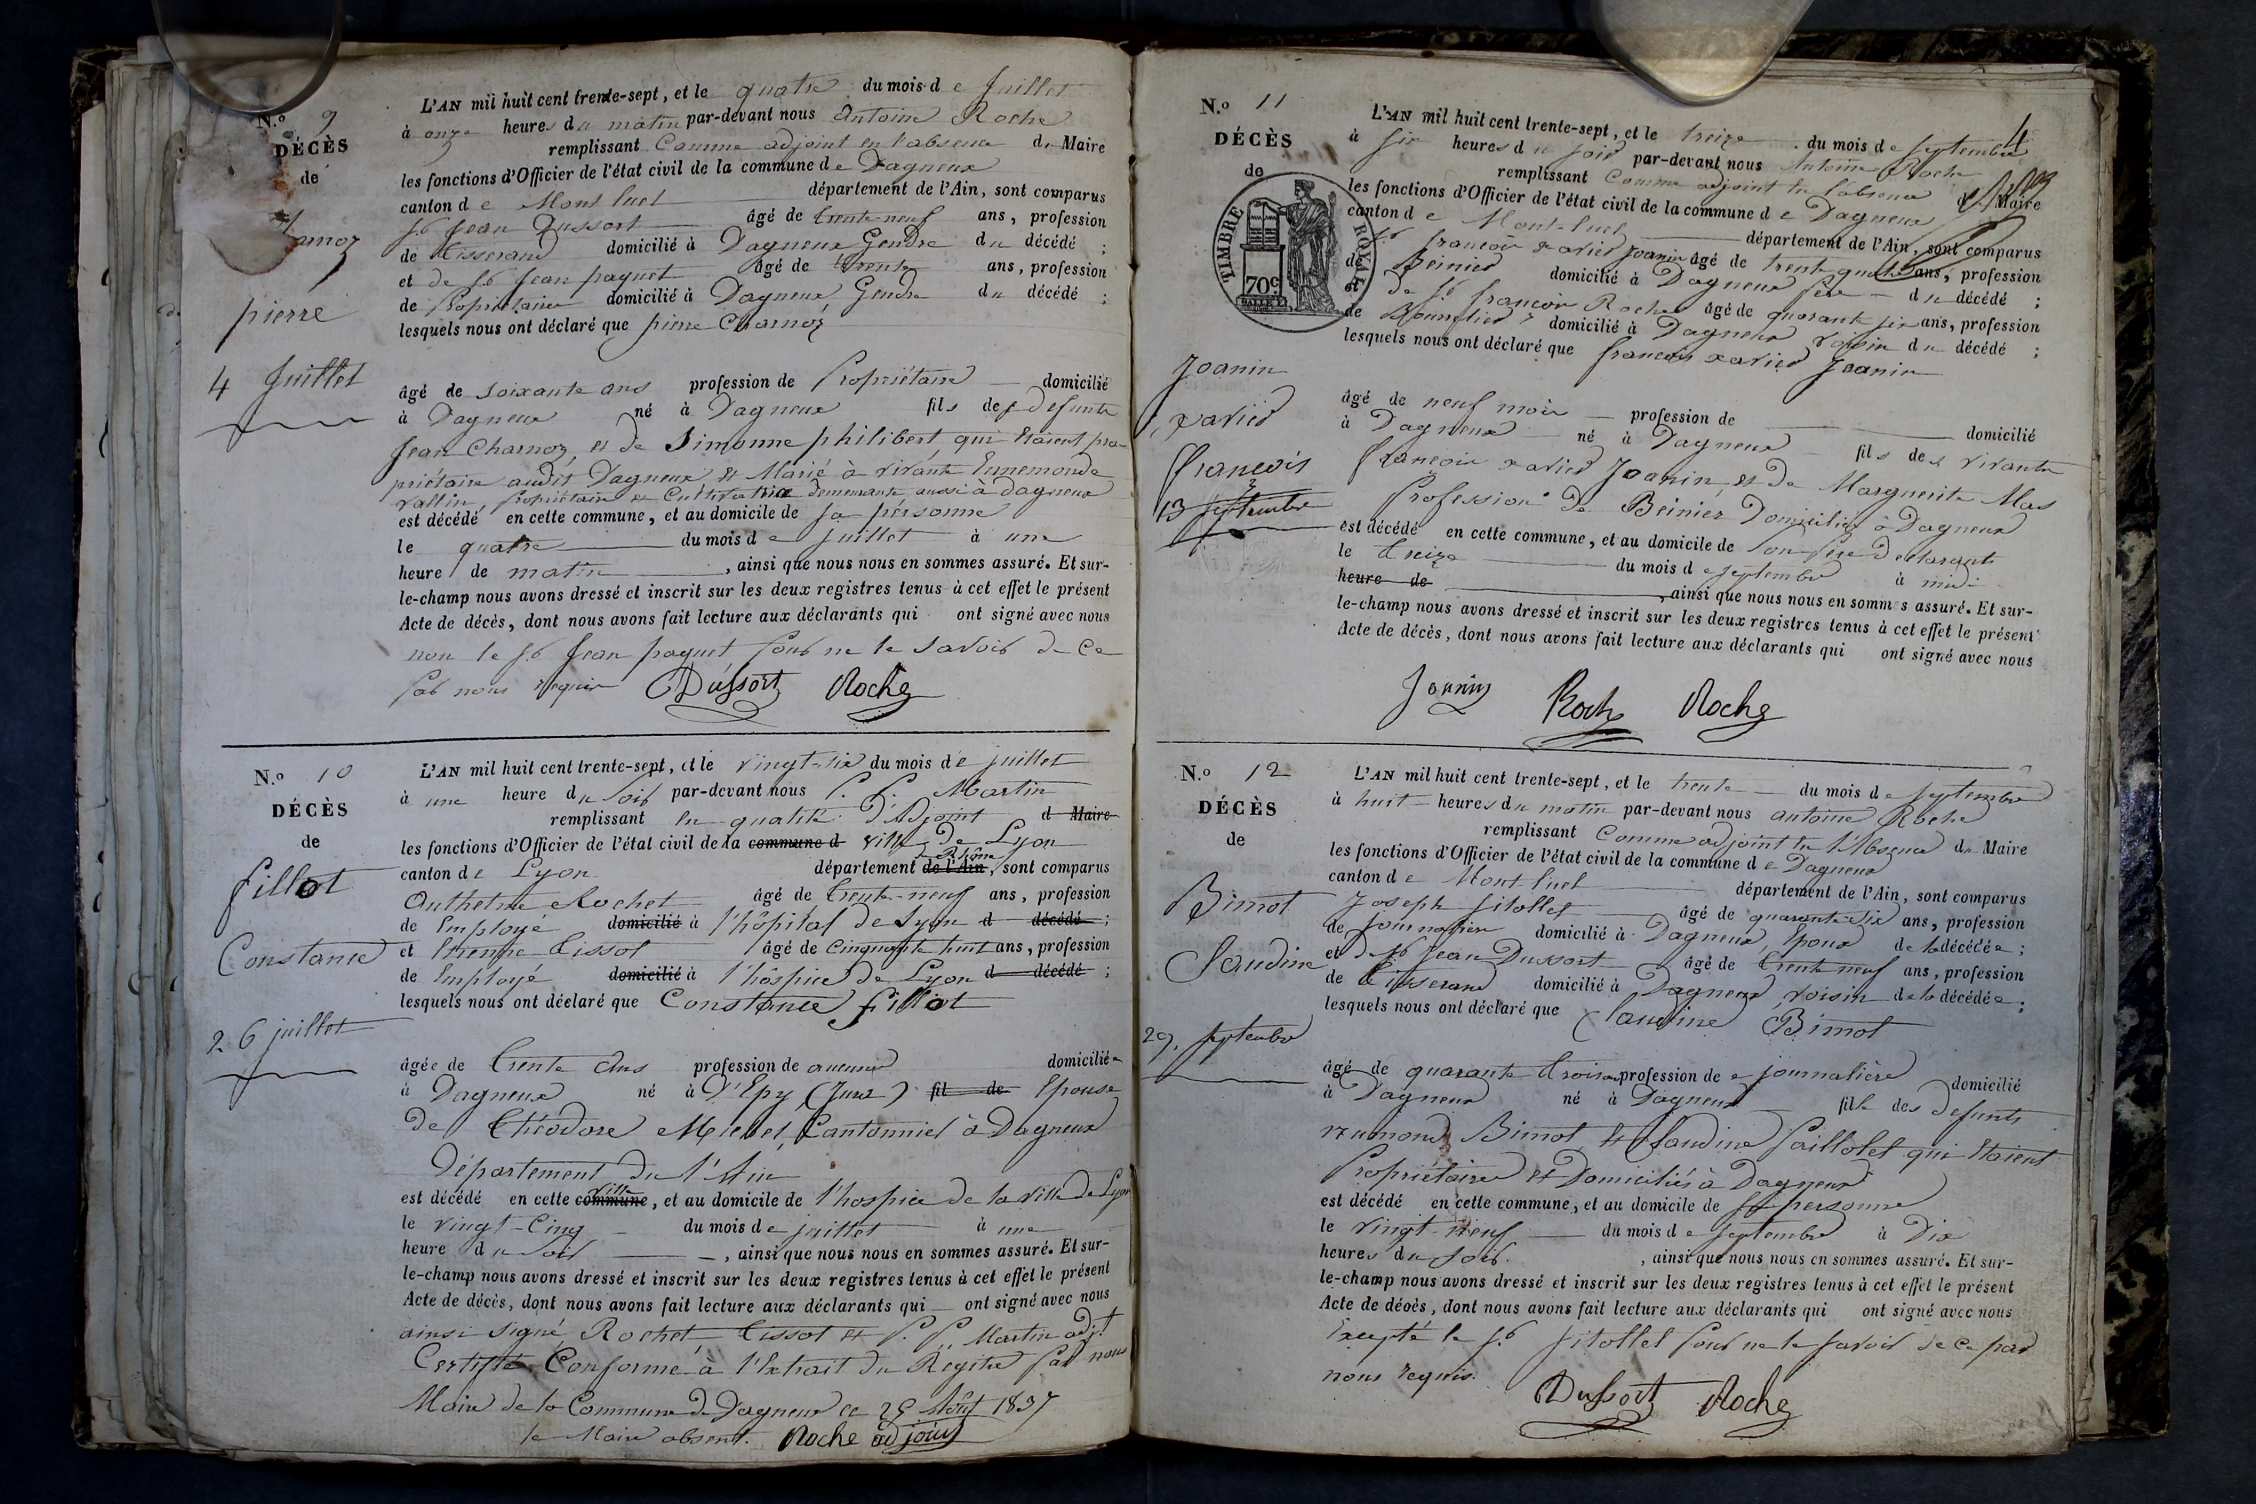 N.º 9
DÉCÈS
de
Charnoz
pierre
4 Juillet
L'AN mil huit cent trente-sept, et le quatre du mois de Juillet
à onze heures du matin par-devant nous Antoine Roche
remplissant Comme adjoint en l'absence du Maire
les fonctions d'Officier de l'état civil de la commune de Dagneux
canton de Montluel département de l'Ain, sont comparus
sr Jean Dussort âgé de trente-neuf ans, profession
de tisserand domicilié à Dagneux Gendre du décédé ;
et de sr Jean paquet âgé de trente ans, profession
de Propriétaire domicilié à Dagneux Gendre du décédé ;
lesquels nous ont déclaré que pierre Charnoz
âgé de soixante ans profession de Propriétaire domicilié
à Dagneux né à Dagneux fils des defunts
Jean Charnoz, et de Simonne philibert, qui Etaient pro-
priétaire audit Dagneux et Marié à vivante Ennemonde
vallin, propriétaire et Cultivatrice demeurante aussi à Dagneux
est décédé en cette commune, et au domicile de sa personne
le quatre du mois de juillet à une
heure de matin, ainsi que nous nous en sommes assuré. Et sur-
le-champ nous avons dressé et inscrit sur les deux registres tenus à cet effet le présent
Acte de décès, dont nous avons fait lecture aux déclarants qui ont signé avec nous
non le sr Jean paquet pour ne le savoir de ce
par nous requis Dussort Roche
N.º 10
DÉCÈS
de
fillot
Constance
26 juillet
L'AN mil huit cent trente-sept, et le vingt-six du mois de juillet
à une heure du soir par-devant nous P. P. Martin
remplissant en qualité d'Adjoint d Maire
les fonctions d'Officier de l'état civil de la commune d ville de Lyon
canton de Lyon département de l'Ain Rhône, sont comparus
Authelme Rochet âgé de trente-neuf ans, profession
de Employé domicilié à l'hôpital de Lyon d décédé ;
et Etienne Tissot âgé de Cinquante huit ans, profession
de Employé domicilié à l'hospice de Lyon d décédé ;
lesquels nous ont déclaré que Constance fillot
âgée de trente Ans profession de aucune domiciliée
à Dagneux né à D'Epy (Jura) fil de Epouse
De Théodore Michel, Cantonnier à Dagneux
Département de l'Ain
est décédé en cette commune ville, et au domicile de l'hospice de la ville de Lyon
le vingt-Cinq du mois de juillet à une
heure du soir, ainsi que nous nous en sommes assuré. Et sur-
le-champ nous avons dressé et inscrit sur les deux registres tenus à cet effet le présent
Acte de décès, dont nous avons fait lecture aux déclarants qui ont signé avec nous
ainsi signé Rochet Tissot et P. P. Martin adjt
Certifié Conforme à l'Extrait du Régitre par nous
Maire de la Commune de Dagneux ce 25 Août 1837
le Maire absent. Roche adjoint
N.º 11
DÉCÈS
de
TIMBRE ROYAL
70c
Joanin
xavier
françois
13 septembre
L'AN mil huit cent trente-sept, et le treize du mois de septembre
à six heures du soir par-devant nous Antoine Roche
remplissant Comme adjoint en l'absence du Maire
les fonctions d'Officier de l'état civil de la commune de Dagneux
canton de Mont-luel département de l'Ain, sont comparus
sr françois xavier Joanin âgé de trente quatre ans, profession
de Beinier domicilié à Dagneux père du décédé ;
et de sr françois Roche âgé de quarante six ans, profession
de Bourrelier domicilié à Dagneux voisin du décédé ;
lesquels nous ont déclaré que françois xavier Joanin
âgé de neuf mois profession de domicilié
à Dagneux né à Dagneux fils des vivants
françois xavier Joanin, et de Marguerite Mas
Profession de Beinier Domiciliés à Dagneux
est décédé en cette commune, et au domicile de son père déclarant
le treize du mois de septembre à midi
heure de, ainsi que nous nous en sommes assuré. Et sur-
le-champ nous avons dressé et inscrit sur les deux registres tenus à cet effet le présent
Acte de décès, dont nous avons fait lecture aux déclarants qui ont signé avec nous
Joanin Roche Roche
N.º 12
DÉCÈS
de
Bimot
Claudine
29. septembre
L'AN mil huit cent trente-sept, et le trente du mois de septembre
à huit heures du matin par-devant nous antoine Roche
remplissant Comme adjoint en l'Absence du Maire
les fonctions d'Officier de l'état civil de la commune de Dagneux
canton de Mont-luel département de l'Ain, sont comparus
Joseph Sitollet âgé de quarante-six ans, profession
de Journalier domicilié à Dagneux, Epoux de la décédée ;
et de sr Jean Dussort âgé de trente neuf ans, profession
de tisserand domicilié à Dagneux, voisin de la décédée ;
lesquels nous ont déclaré que Claudine Bimot
âgé de quarante trois ans profession de journalière domicilié
à Dagneux né à Dagneux fille des defunts
Bimot et Claudine Paillolet qui Etaient
Propriétaires et Domiciliés à Dagneux
est décédé en cette commune, et au domicile de sa personne
le vingt-neuf du mois de septembre à Dix
heures du soir., ainsi que nous nous en sommes assuré. Et sur-
le-champ nous avons dressé et inscrit sur les deux registres tenus à cet effet le présent
Acte de décès, dont nous avons fait lecture aux déclarants qui ont signé avec nous
Excepté le sr Sitollet pour ne le savoir de ce par
nous requis.
Dussort Roche